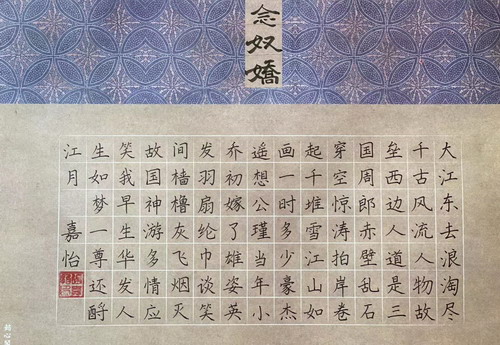 念奴嬌
大江东去浪淘尽
千古风流人物故
垒西边人道是三
国周郎赤壁乱石
穿空惊涛拍岸卷
起千堆雪江山如
画一时多少豪杰
遥想公瑾当年小
乔初嫁了雄姿英
发羽扇纶巾谈笑
间樯橹灰飞烟灭
故国神游多情应
笑我早生华发人
生如梦一尊还酹
江月 嘉怡